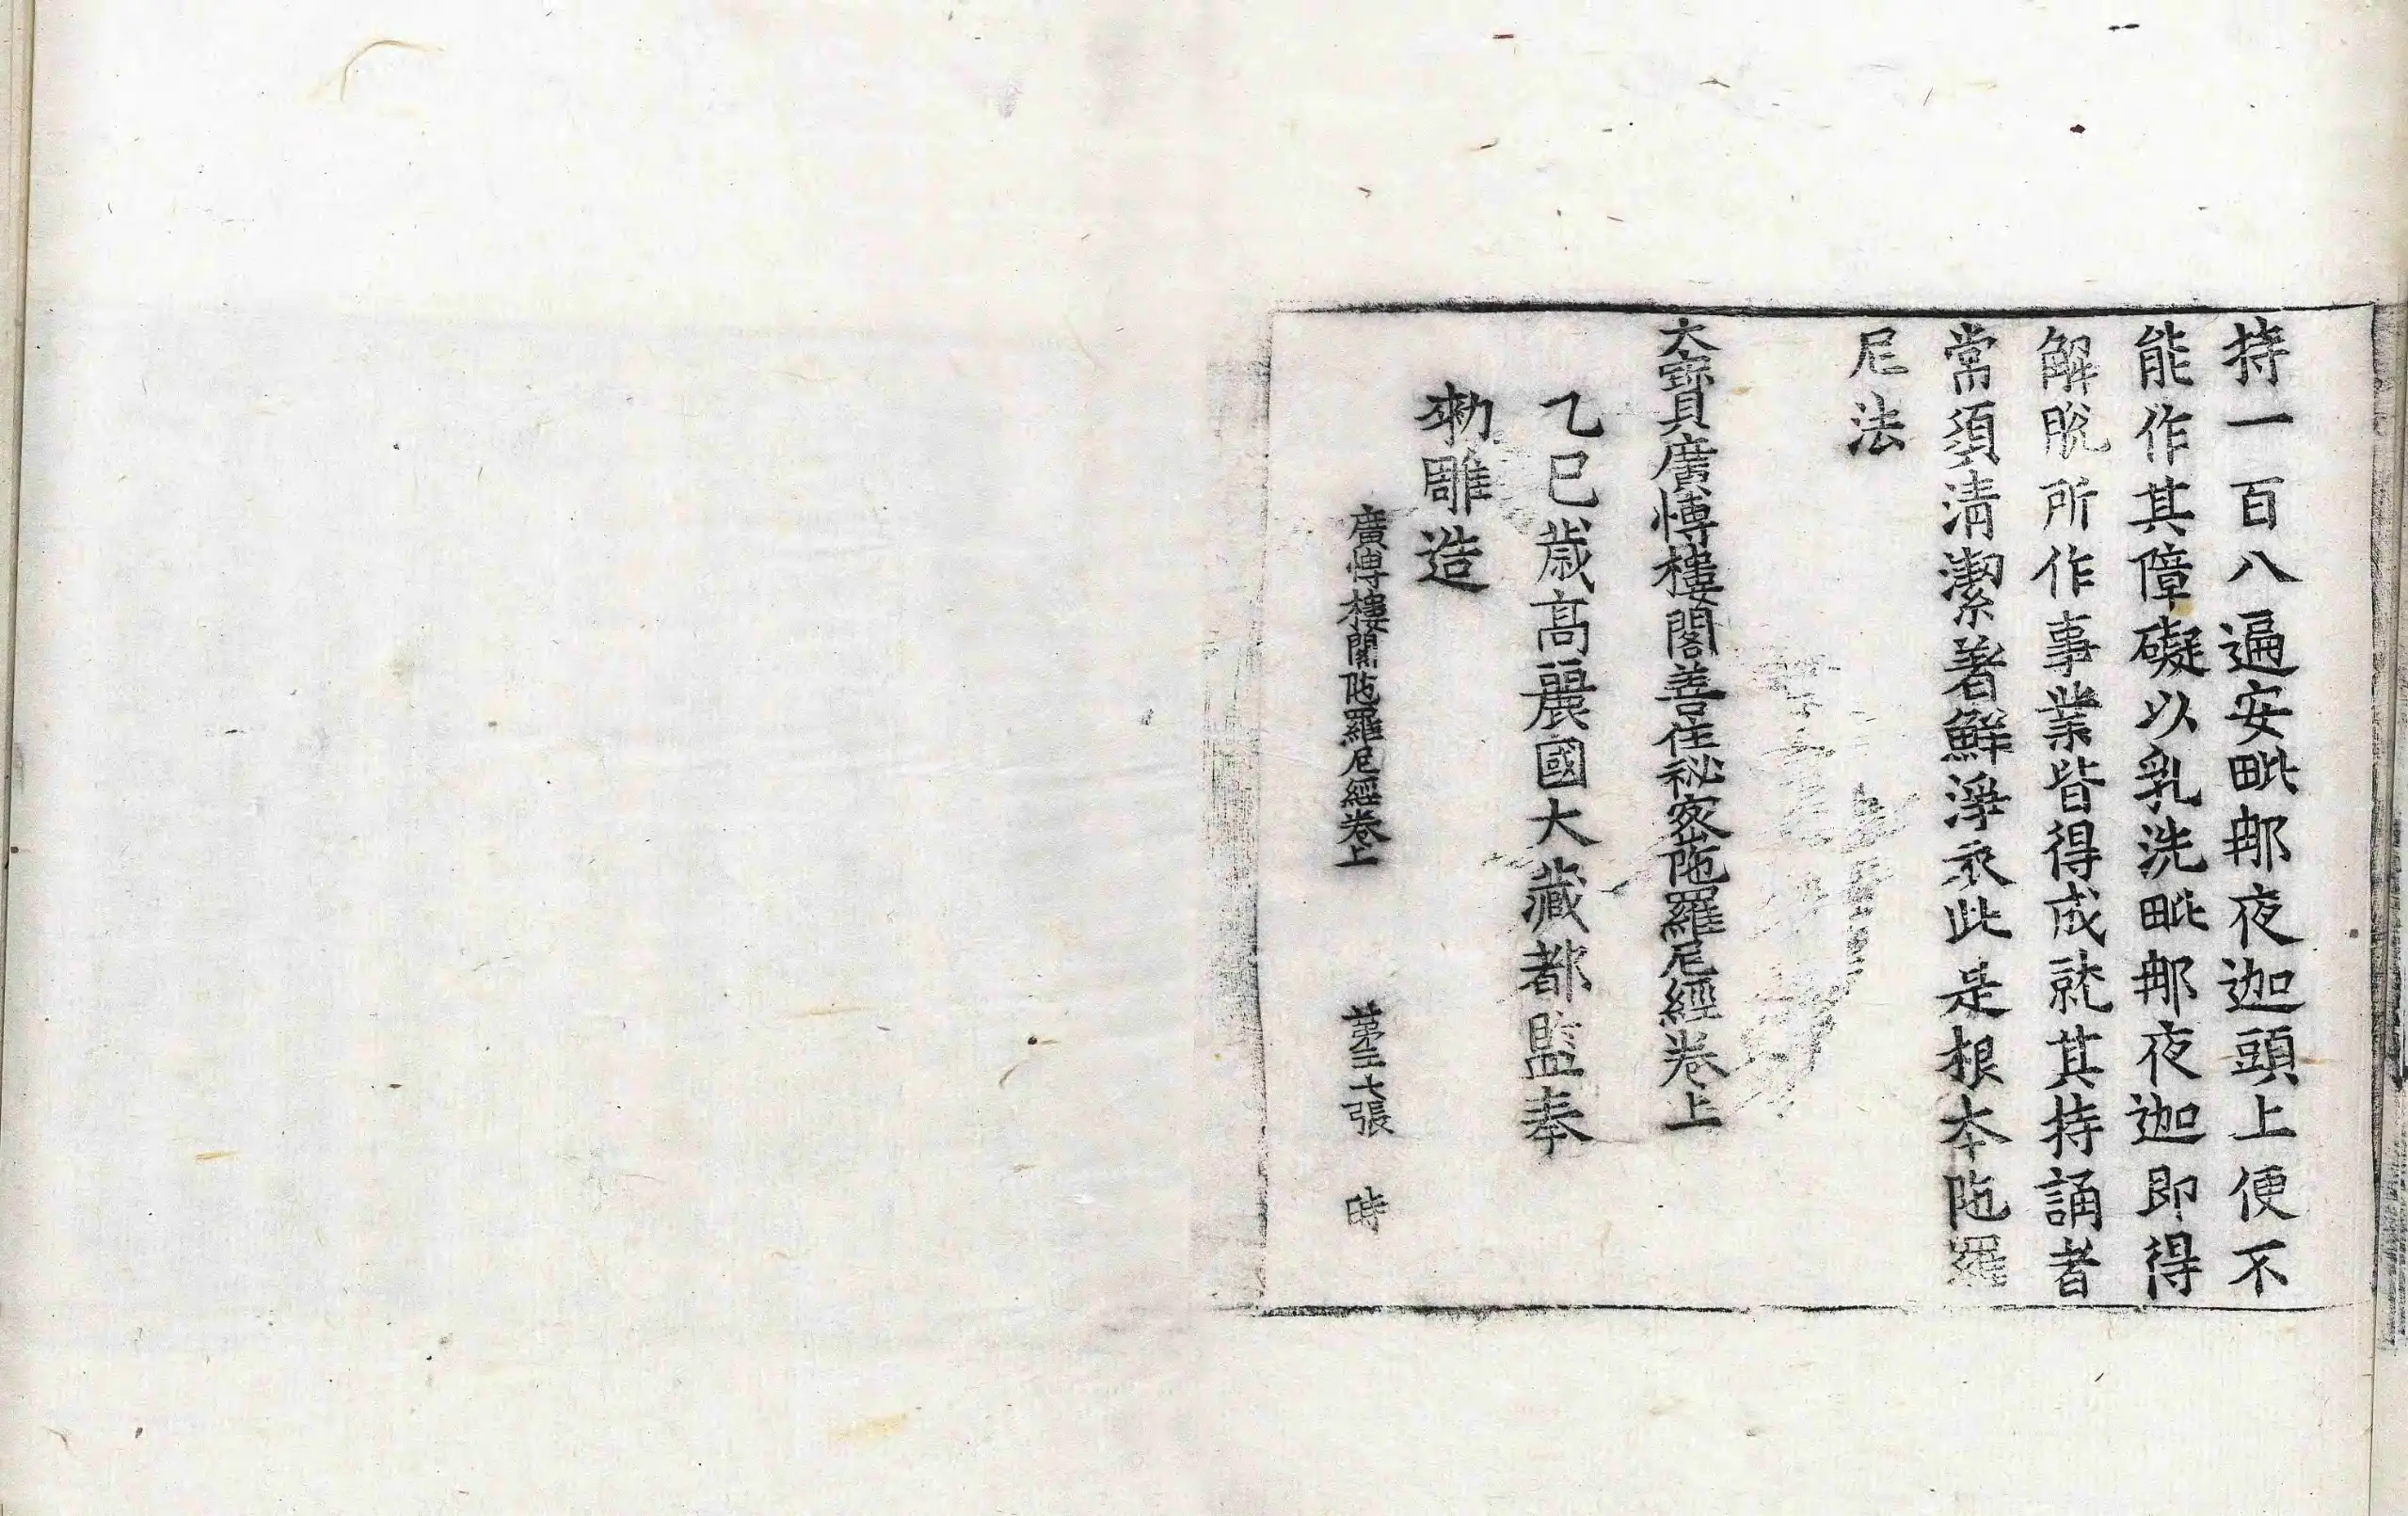 持一百八遍安毗那夜迦頭上便不
能作其障礙以乳洗毗那夜迦即得
解脫所作事業皆得成就其持誦者
常須清潔著鮮淨衣此是根本陁羅
尼法
大寶廣博樓閣善住祕密陁羅尼經卷上
乙巳歲高麗國大藏都監奉
勑雕造
廣博樓閣陁羅尼經卷上 第三十張 時